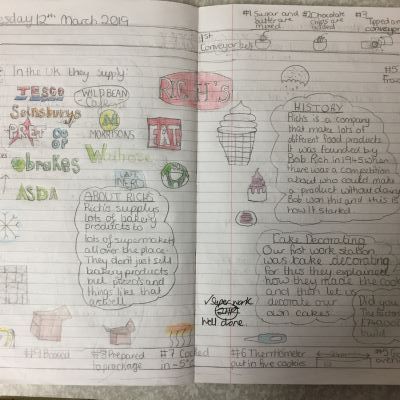 esday 12th March 2019
In the UK they supply
TESCO
WILDBEAN
Cafe
Sainsburys
M
MORRISONS
CO
OP
EAT.
brakes
Waitrose
CAFE
NERO
ASDA
RICH'S
ABOUT RICHS
Rich's supplys
lots of bakery
products to
lots of supermarkets
all over the place.
They dont just sell
bakery products
but pizza's and
things like that
as well
#9 Boxed
#8 Prepared
to package
#7 Cooked
in -5°C
1st
Conveyor belt
#1 Sugar and
butter are
mixed.
#2 Chocolate
chips are
added
#3
Tipped on
conveyor
#5
Froz
HISTORY
Rich's is a company
that make lots of
different food products
It was founded by
Bob Rich in 1945 when
there was a competition
about who could make
a product without dairy
Bob won this and this is
how it started
Cake Decorating
Our first work station
was bake decorating
For this they explained
how they made the cook
and then let us
decorate our
own cakes
Super work
Well done.
Did you
The factory
build
#6 Thermometer
put in five cookies
oven